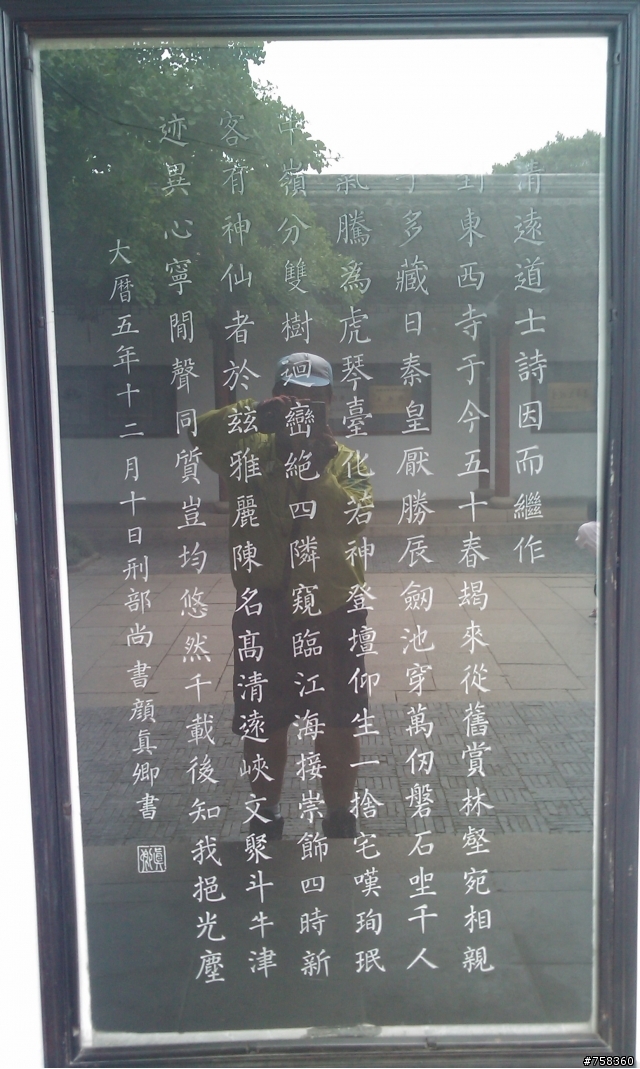 清遠道士詩因而繼作
到東西寺于今五十春朅來從舊賞林壑宛相親
多藏日秦皇厭勝辰劔池穿萬仞磐石坐千人
氣騰為虎琴臺化若神登壇仰生一捨宅嘆珣珉
中嶺分雙樹迴巒絶四隣窺臨江海接崇飾四時新
客有神仙者於茲雅麗陳名高清遠峽文聚斗牛津
迹異心寧間聲同質豈均悠然千載後知我挹光塵
大曆五年十二月十日刑部尚書顏真卿書
真卿
#758360